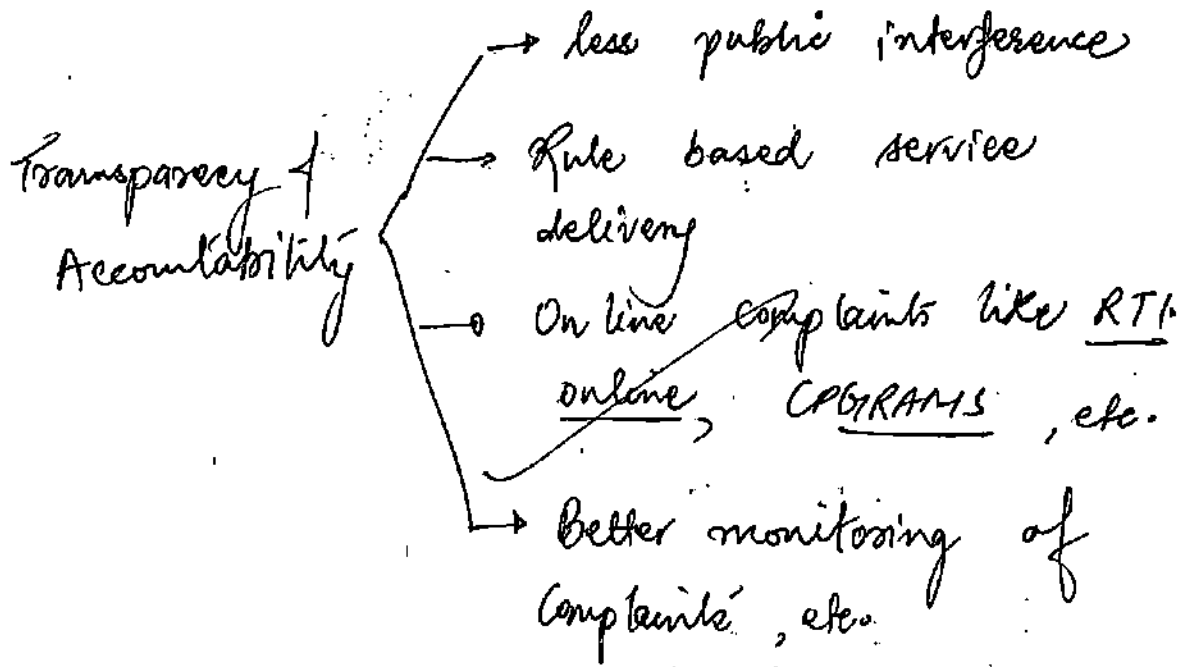 Transparecy &
Accountability
→ less public interference
→ Rule based service
delivery
→ On line complaints like RTI
online, CPGRAMS, etc.
→ Better monitoring of
Complaints, etc.